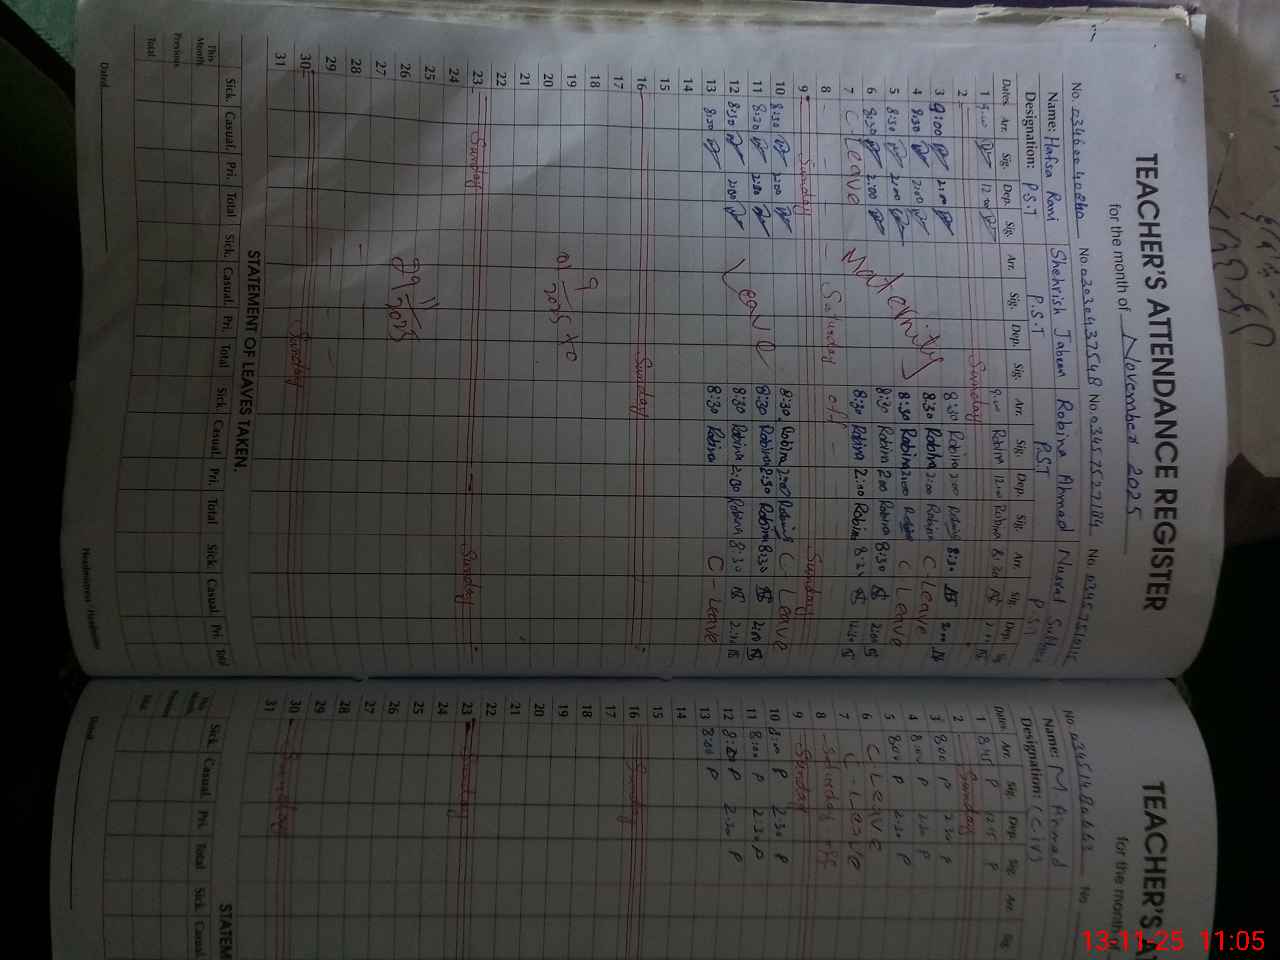 TEACHER'S ATTENDANCE REGISTER
for the month of November 2025
Name: Hafsa Rani Shehrish Jabeen Robina Ahmad Nusrat Sultana
Designation: P.S.T P.S.T P.S.T P.S.T
Dates Arr. Sig. Dep. Sig. Arr. Sig. Dep. Sig. Arr. Sig. Dep. Sig. Arr. Sig. Dep. Sig.
1 9:00 12:00 9:00 Robina 12:00 Robina 8:30
2 Sunday
3 9:00 2:00 8:30 Robina 2:00 Robina 8:30 2:00
4 8:30 2:00 Maternity 8:30 Robina 2:00 Robina C Leave
5 8:30 2:00 8:30 Robina 2:00 C Leave
6 8:30 2:00 8:30 Robina 2:00 Robina 8:30 2:00
7 C-Leave 8:30 Robina 2:00 Robina 8:30
8 - - - - Saturday off -
9 Sunday Sunday
10 8:30 2:00 8:30 Robina 2:00 Robina C-Leave
11 8:30 2:00 Leave 8:30 Robina 2:30 Robina 8:30 2:00
12 8:30 2:00 8:30 Robina 2:30 Robina 8:30 2:30
13 8:30 8:30 Robina C-Leave
14
15
16 Sunday
17
18
19 9
20 01 2025 to
21
22
23 Sunday Sunday
24
25 11
26 29 2025
27
28
29
30 Sunday
31
STATEMENT OF LEAVES TAKEN.
Sick. Casual. Pri. Total Sick. Casual. Pri. Total Sick. Casual. Pri. Total Sick. Casual. Pri. Total
This Month
Previous
Total
Dated Headmistress / Headmaster
TEACHER'S A
for the month
No. No
Name: M Ahmad
Designation: (C.IV)
Dates Arr. Sig. Dep. Sig. Arr. Sig.
1 8:45 P 12:15 P
2 Sunday
3 8:00 P 2:30 P
4 8:00 P 2:30 P
5 8:00 P 2:30 P
6 C Leave
7 C-Leave
8 - Saturday off
9 Sunday
10 8:00 P 2:30 P
11 8:00 P 2:30 P
12 8:00 P 2:30 P
13 8:00 P
14
15
16 Sunday
17
18
19
20
21
22
23 Sunday
24
25
26
27
28
29
30 Sunday
31
STATEM
Sick. Casual Pri. Total Sick. Casual.
This Month
Previous
Total
Dated
13-11-25 11:05